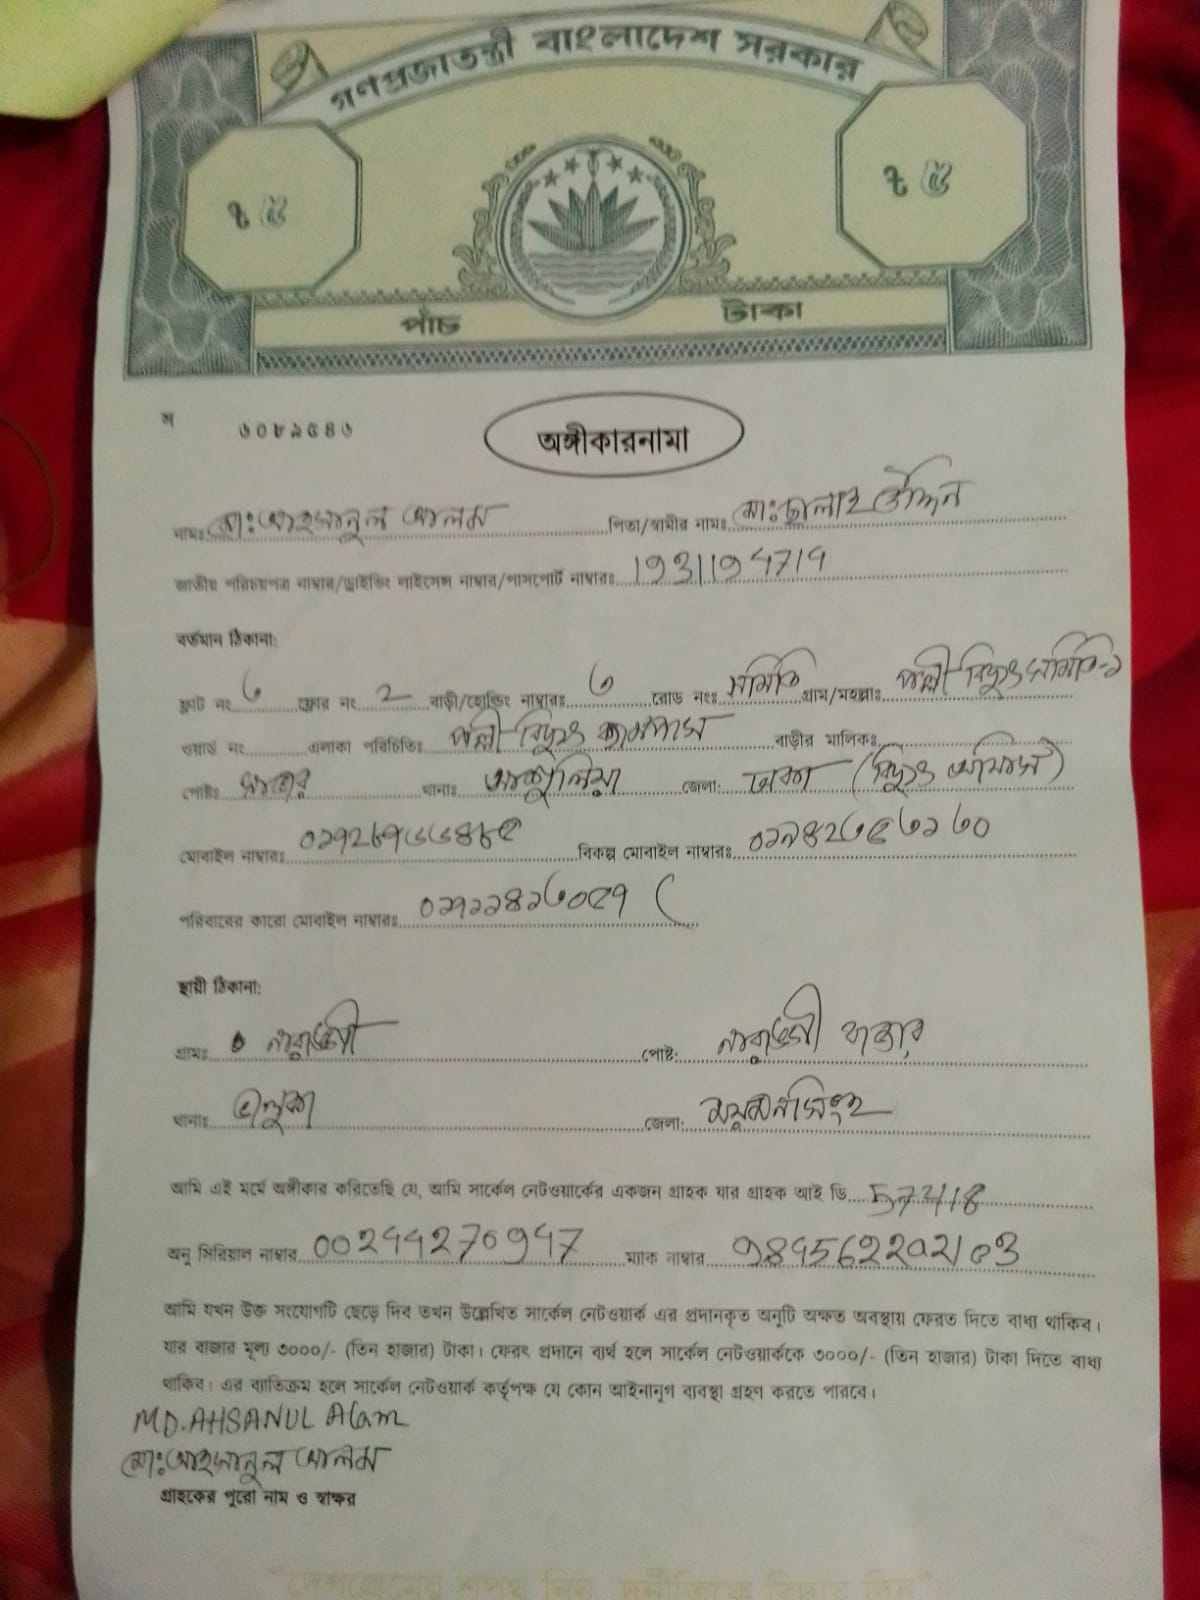 গণপ্রজাতন্ত্রী বাংলাদেশ সরকার
৳ ৫ ৳ ৫
পাঁচ টাকা
স ৬০৮৯৫৪৬
অঙ্গীকারনামা
নামঃ মোঃ আহসানুল আলম পিতা/স্বামীর নামঃ মোঃ ছালাহ উদ্দিন
জাতীয় পরিচয়পত্র নাম্বার/ড্রাইভিং লাইসেন্স নাম্বার/পাসপোর্ট নাম্বারঃ
বর্তমান ঠিকানা:
ফ্লাট নং ৩ ফ্লোর নং ২ বাড়ী/হোল্ডিং নাম্বারঃ ৩ রোড নংঃ সমিতি গ্রাম/মহল্লাঃ পল্লী বিদ্যুৎ সমিতি-১
ওয়ার্ড নং এলাকা পরিচিতিঃ পল্লী বিদ্যুৎ বাড়ীর মালিকঃ
পোষ্টঃ সাভার থানাঃ আশুলিয়া জেলা: ঢাকা (বিদ্যুৎ অফিস)
মোবাইল নাম্বারঃ বিকল্প মোবাইল নাম্বারঃ
পরিবারের কারো মোবাইল নাম্বারঃ
স্থায়ী ঠিকানা:
গ্রামঃ নারাঙ্গী পোষ্ট: নারাঙ্গী বাজার
থানাঃ ভালুকা জেলা: ময়মনসিংহ
আমি এই মর্মে অঙ্গীকার করিতেছি যে, আমি সার্কেল নেটওয়ার্কের একজন গ্রাহক যার গ্রাহক আই ডি
অনু সিরিয়াল নাম্বার ম্যাক নাম্বার
আমি যখন উক্ত সংযোগটি ছেড়ে দিব তখন উল্লেখিত সার্কেল নেটওয়ার্ক এর প্রদানকৃত অনুটি অক্ষত অবস্থায় ফেরত দিতে বাধ্য থাকিব।
যার বাজার মূল্য ৩০০০/- (তিন হাজার) টাকা। ফেরৎ প্রদানে ব্যর্থ হলে সার্কেল নেটওয়ার্ককে ৩০০০/- (তিন হাজার) টাকা দিতে বাধ্য
থাকিব। এর ব্যতিক্রম হলে সার্কেল নেটওয়ার্ক কর্তৃপক্ষ যে কোন আইনানুগ ব্যবস্থা গ্রহণ করতে পারবে।
MD. AHSANUL Alam
মোঃ আহসানুল আলম
গ্রাহকের পুরো নাম ও স্বাক্ষর